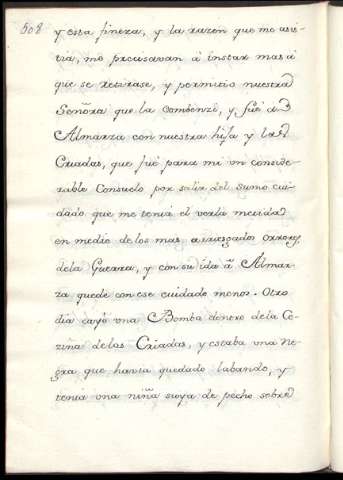 508
y essa fineza, y la razon que me asis-
tiá, mo procuravan á instar mas á
que se retirase, y permitio nuestra
Señora que la Combenzi, y fué á
Almarza con nuestra hija y las
Criadas, que fué para mi un conside-
rable Consuelo por salir del sumo cui-
dado que me teniá el verla metida
en medio de los mas arriesgados orrores
dela Guerra, y con su ida á Almar-
za quede con ese cuidado menos. Otro
dia cayó una Bomba dentro dela Co-
zina de las Criadas, y estaba una Ne-
gra que havia quedado labando, y
teniá una niña suya de pecho sobre